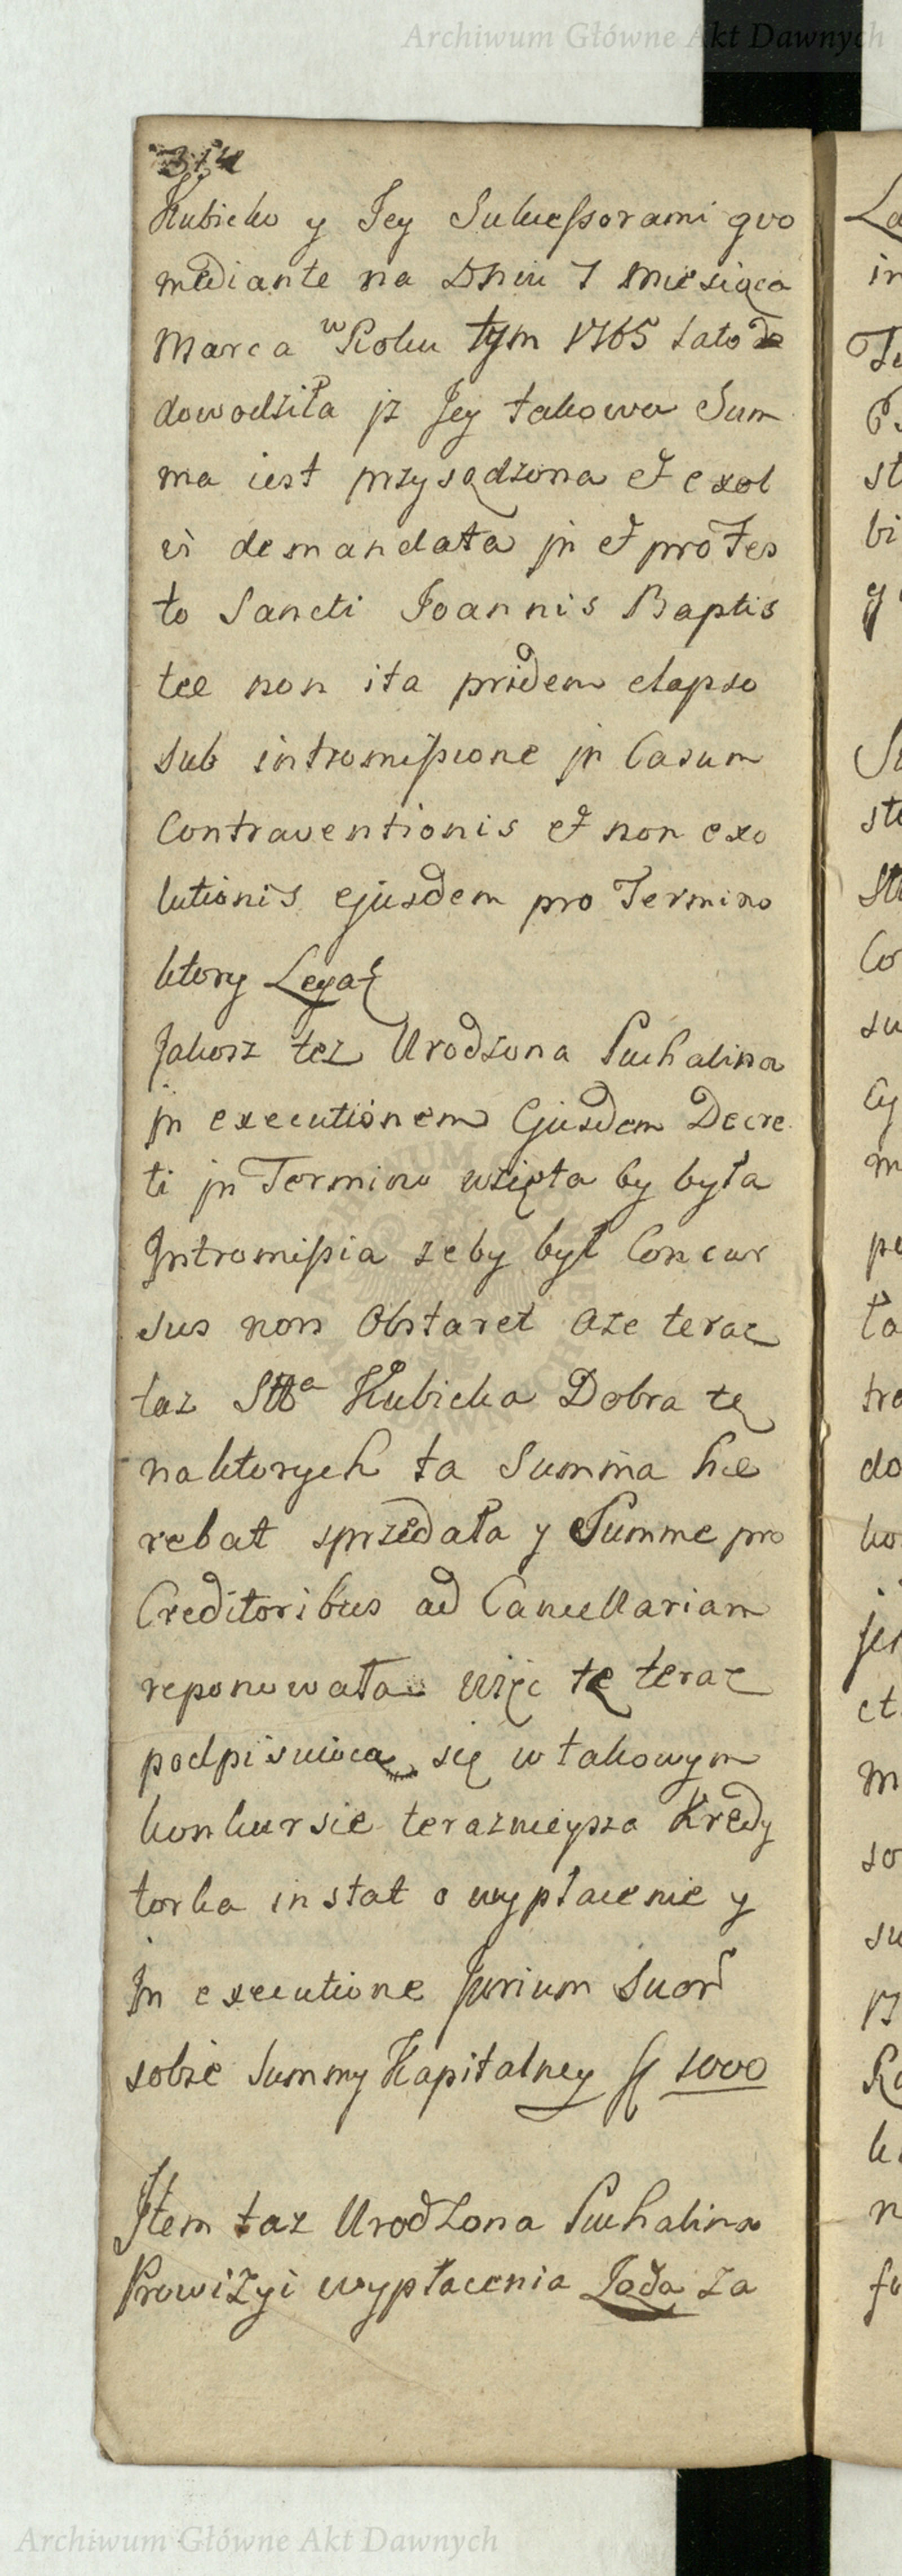 Archiwum Główne Akt Dawnych
314
Kubicko y Jey Sukcessorami quo
mediante na Dniu 7 Miesiąca
Marca w Roku tym 1765 Lato
dowodziła jz Jey takowa Sum
ma iest przysądzona et exol
vi demandata jn et pro Fes
to Sancti Joannis Baptis
tæ non ita pridem elapso
sub intromissione jn Casum
Contraventionis et non exo
lutionis ejusdem pro Termino
ktory Legał
Jakosz tez Urodzona Puchalina
jn executionem Ejusdem Decre
ti jn Termino wzięta by była
Jntromissia zeby był Concur
sus non Obstaret Aze teraz
taz Stta Kubicka Dobra tę
naktorych ta Summa hæ
rebat sprzedała y Summe pro
Creditoribus ad Cancellariam
reponowała więc tę teraz
podpisuiąca się w takowym
konkursie teraznieysza Kredy
torka instat o wypłacenie y
Jn executione Jurium Suor
sobie Summy Kapitalney fl 1000
Jtem taz Urodzona Puchalina
Prowizyi wypłacenia Żąda za
Archiwum Główne Akt Dawnych